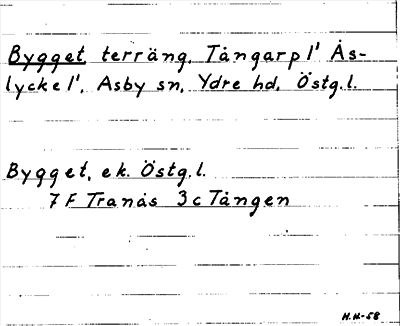 Bygget terräng, Tångarp 1' Ås-
lycke 1', Asby sn, Ydre hd, Östg.l.
Bygget, ek. Östg.l.
7 F Tranås 3c Tången
H.H.-58